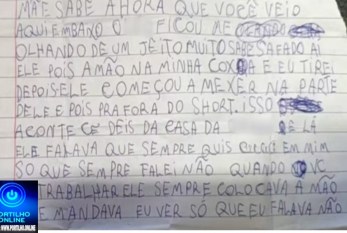 MÃE SABE AHORA QUE VOCÊ VEIO
AQUI EMBAXO O FICOU ME
OLHANDO DE UM JEITO MUITO SABE SAFADO AI
ELE POIS A MÃO NA MINHA COXA E EU TIREI
DEPOIS ELE COMEÇOU A MEXER NA PARTE
DELE E POIS PRA FORA DO SHORT. ISSO
ACONTECE DEIS DA CASA DA E LÁ
ELE FALAVA QUE SEMPRE QUIS EM MIM
SO QUE SEMPRE FALEI NÃO QUANDO VC
TRABALHAR ELE SEMPRE COLOCAVA A MÃO
E MANDAVA EU VER SÓ QUE EU FALAVA NÃO
PORTILHO
ONLINE